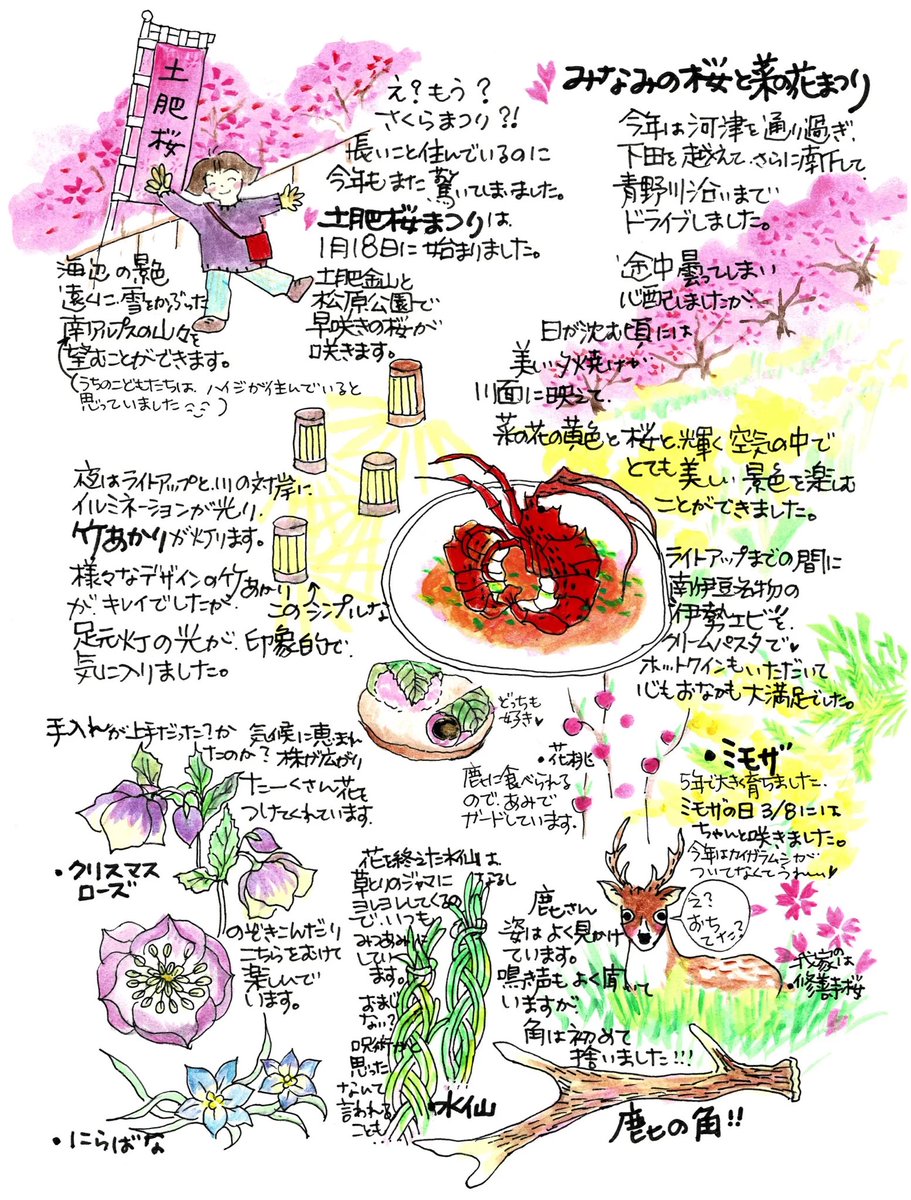 土肥桜
え?もう?
さくらまつり?!
長いこと住んでいるのに
今年もまた驚いてしまいました。
土肥桜まつりは
1月18日に始まりました。
土肥金山と
松原公園で
早咲きの桜が
咲きます。
海辺の景色
遠くに、雪をかぶった
南アルプスの山々を
望むことができます。
(うちのこどもたちは、ハイジが住んでいると
思っていました)
みなみの桜と菜の花まつり
今年は河津を通り過ぎ、
下田を越えて、さらに南下して
青野川沿いまで
ドライブしました。
途中曇ってしまい
心配しましたが、
日が沈む頃には
美しい夕焼けが
川面に映えて、
菜の花の黄色と桜と、輝く空気の中で
とても美しい景色を楽しむ
ことができました。
夜はライトアップと、川の対岸に
イルミネーションが光り、
竹あかりが灯ります。
様々なデザインの竹あかり
が、キレイでしたが、
このシンプルな
足元灯の光が、印象的で、
気に入りました。
ライトアップまでの間に
南伊豆名物の
伊勢エビを
クリームパスタで
ホットワインもいただいて
心もおなかも大満足でした。
どっちも
好き
手入れが上手だった?か
気候に恵まれ
たのか?
株が広がり
たーくさん花を
つけてくれています。
・クリスマス
ローズ
のぞきこんだり
こちらをむけて
楽しいんで
います。
・にらばな
・花桃
鹿に食べられる
ので、あみで
ガードしています。
・ミモザ
5年で大きく育ちました。
ミモザの日3/8には
ちゃんと咲きました。
今年はカイガラムシが
ついてなくてうれしい
花を終えた水仙は
草とりのジャマになるし
ヨレヨレしてくるの
で、いつも
みつあみに
してい
ます。
おまじ
ない?
呪術かと
思った
なんて
言われる
ことも…
・水仙
鹿さん
姿はよく見かけ
ています。
鳴き声もよく聞いて
いますが、
角は初めて
捨いました!!!
え?
おち
てた?
我家のは
・修善寺桜
鹿の角!!